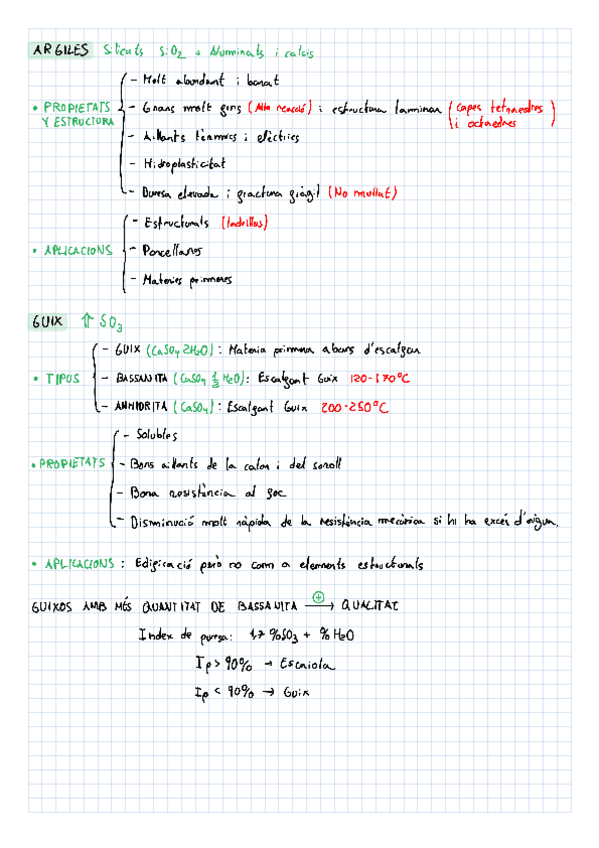 ARGILES Silicats SiO2 + Aluminats i calcis
- Molt abundant i barat
• PROPIETATS Y ESTRUCTURA
- Grans molt fins (Alta reacció) i estructura laminar (capes tetraedres i octaedres)
- Aïllants tèrmics i elèctrics
- Hidroplasticitat
- Duresa elevada i fractura fràgil (No mullat)
- Estructurals (ladrillos)
• APLICACIONS - Porcellanes
- Materies primeres
GUIX ⇑ SO3
- GUIX (CaSO4 2H2O): Materia primera abans d'escalfar
• TIPUS - BASSANITA (CaSO4 1/2 H2O): Escalfant Guix 120-170ºC
- ANHIDRITA (CaSO4): Escalfant Guix 200-250ºC
- Solubles
• PROPIETATS - Bons aïllants de la calor i del soroll
- Bona resistència al foc
- Disminució molt ràpida de la resistència mecànica si hi ha excés d'aigua.
• APLICACIONS: Edificació però no com a elements estructurals
GUIXOS AMB MÉS QUANTITAT DE BASSANITA ⊕→ QUALITAT
Index de puresa: 1,7 %SO3 + %H2O
Ip > 90% → Escaiola
Ip < 90% → Guix